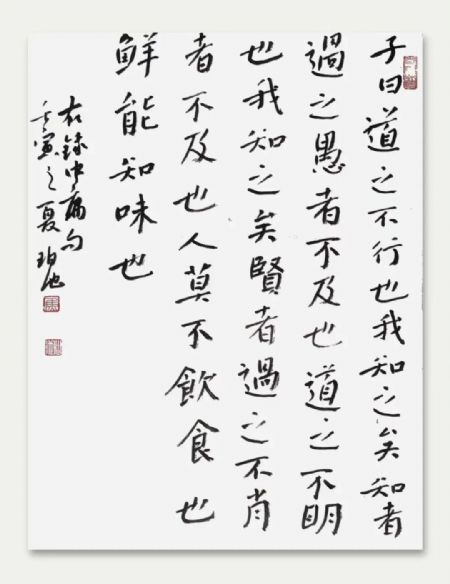 子曰道之不行也我知之矣知者
過之愚者不及也道之不明
也我知之矣賢者過之不肖
者不及也人莫不飲食也
鮮能知味也
右錄中庸句
壬寅之夏